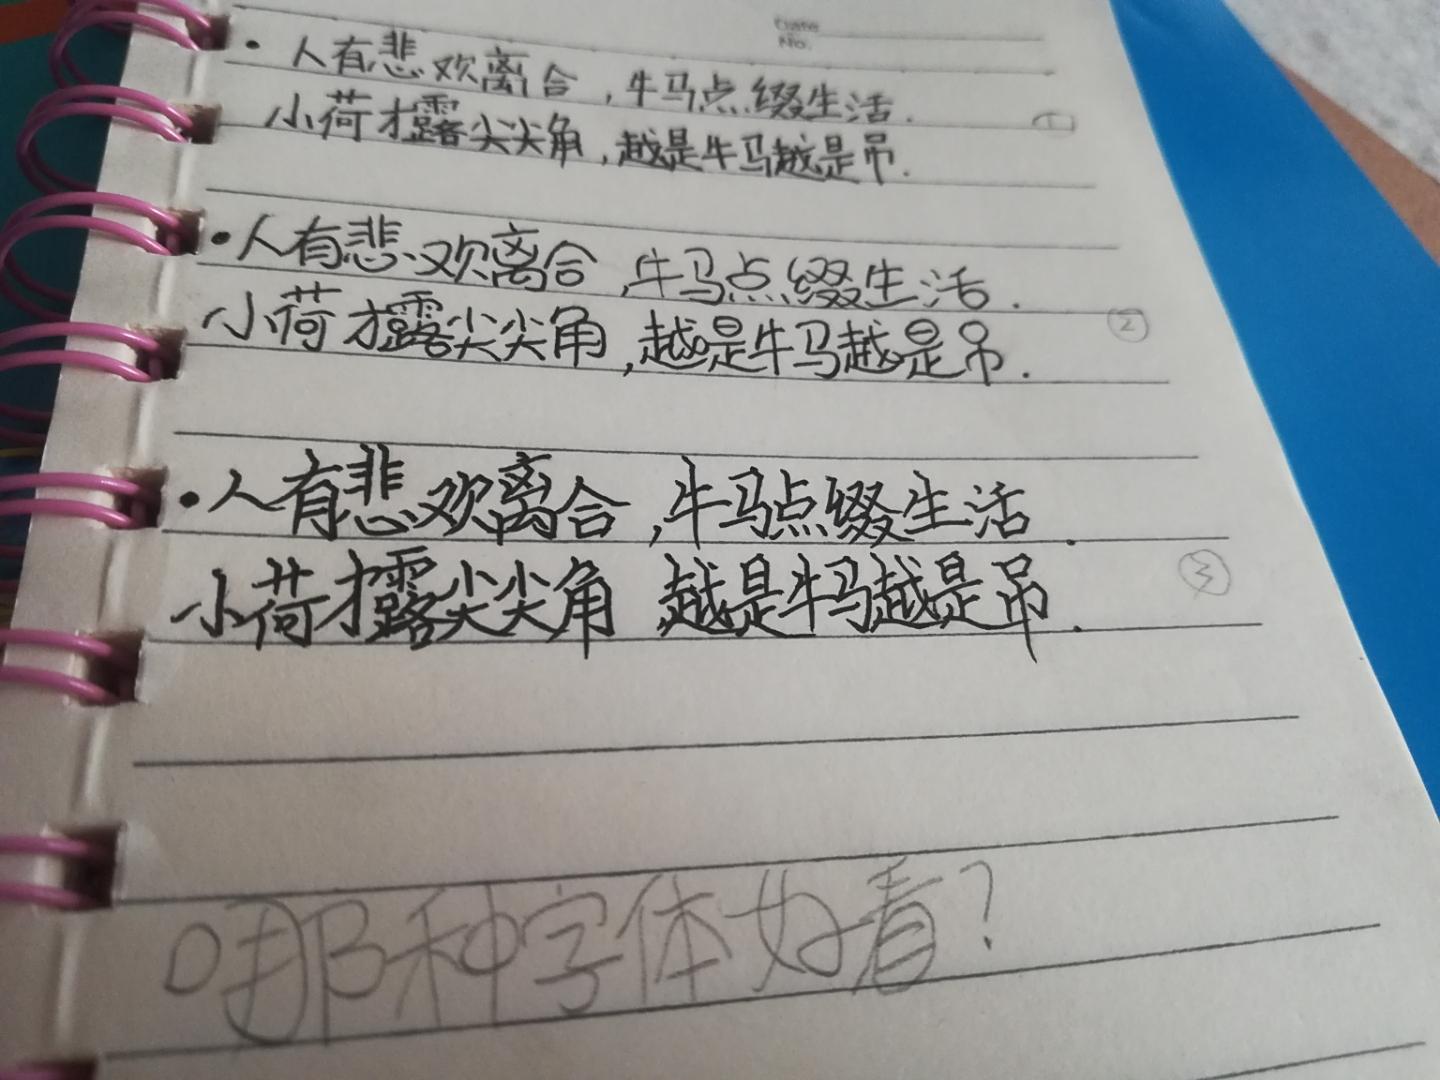 Date
No.
·人有悲欢离合,牛马点缀生活.
小荷才露尖尖角,越是牛马越是吊. ①
·人有悲欢离合,牛马点缀生活.
小荷才露尖尖角,越是牛马越是吊. ②
·人有悲欢离合,牛马点缀生活.
小荷才露尖尖角 越是牛马越是吊. ③
哪种字体好看?